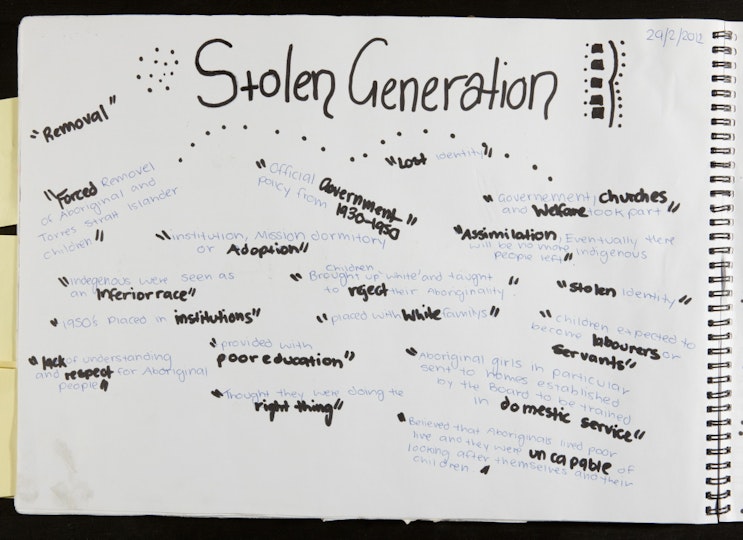 29/2/2012
Stolen Generation
"Removal"
"Lost identity"
"Forced Removel
of Aboriginal and
Torres Strait Islander
children"
"Official
Government
policy from 1930-1950"
"Governement, churches
and Welfare took part"
"institution, Mission dormitory
or Adoption"
"Assimilation, Eventually there
will be no more indigenous
people left"
"Indegenous were seen as
an inferior race"
children
"Brought up 'white' and taught
to reject their Aboriginality"
"Stolen Identity"
"1950's placed in institutions"
"placed with White familys"
"children expected to
become labourers or
servants"
"lack of understanding
and respect for Aboriginal
people"
"provided with
poor education"
"Aboriginal girls in particular
sent to homes established
by the Board to be trained
in domestic service"
"Thought they were doing the
right thing"
"Believed that Aboriginals lived poor
live and they were uncapable of
looking after themselves and their
children"